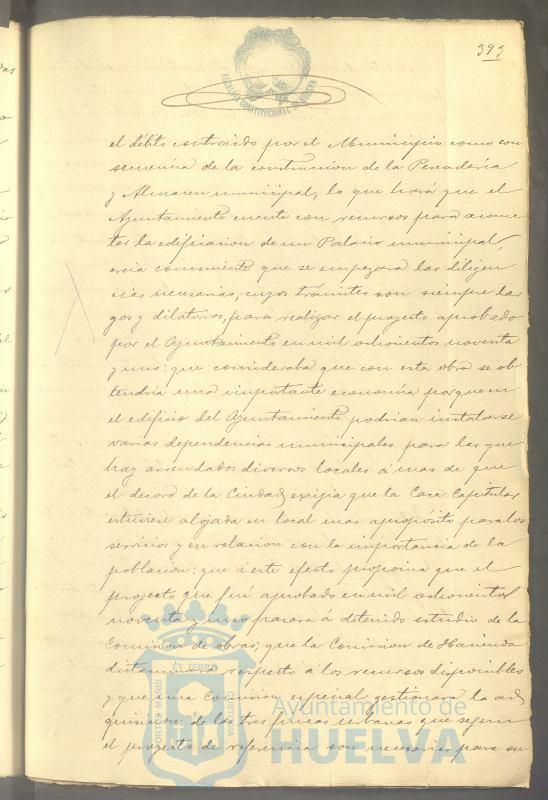 393
ALCALDIA CONSTITUCIONAL DE HUELVA
el débito contraido por el Municipio como con
secuencia de la contruccion de la Pescadería
y Almacen municipal, lo que hará que el
Ayuntamiento cuente con recursos para acome
ter la edificacion de un Palacio municipal,
creia conveniente que se empezara las diligen
cias necesarias, cuyos trámites son siempre lar
gos y dilatorios, para realizar el proyecto aprobado
por el Ayuntamiento en mil ochocientos noventa
y uno: que consideraba que con esta obra se ob
tendría una importante economía porque en
el edificio del Ayuntamiento podrian instalarse
varias dependencias municipales para las que
hay arrendados diversos locales á mas de que
el decoro de la Ciudad exigia que la Casa Capitular
estuviese alojada en local mas apropósito para los
servicios y en relacion con la importancia de la
poblacion: que á este efecto proponia que el
proyecto que fué aprobado en mil ochocientos
noventa y uno pasara á detenido estudio de la
Comision de obras; que la Comision de Hacienda
dictaminara respecto á los recursos disponibles
y que una Comision especial gestionara la ad
quisicion de las tres fincas urbanas que segun
el proyecto de referencia son necesarias para su
PORTUS MARIS ET TERRIS CUSTODIA
Ayuntamiento de
HUELVA